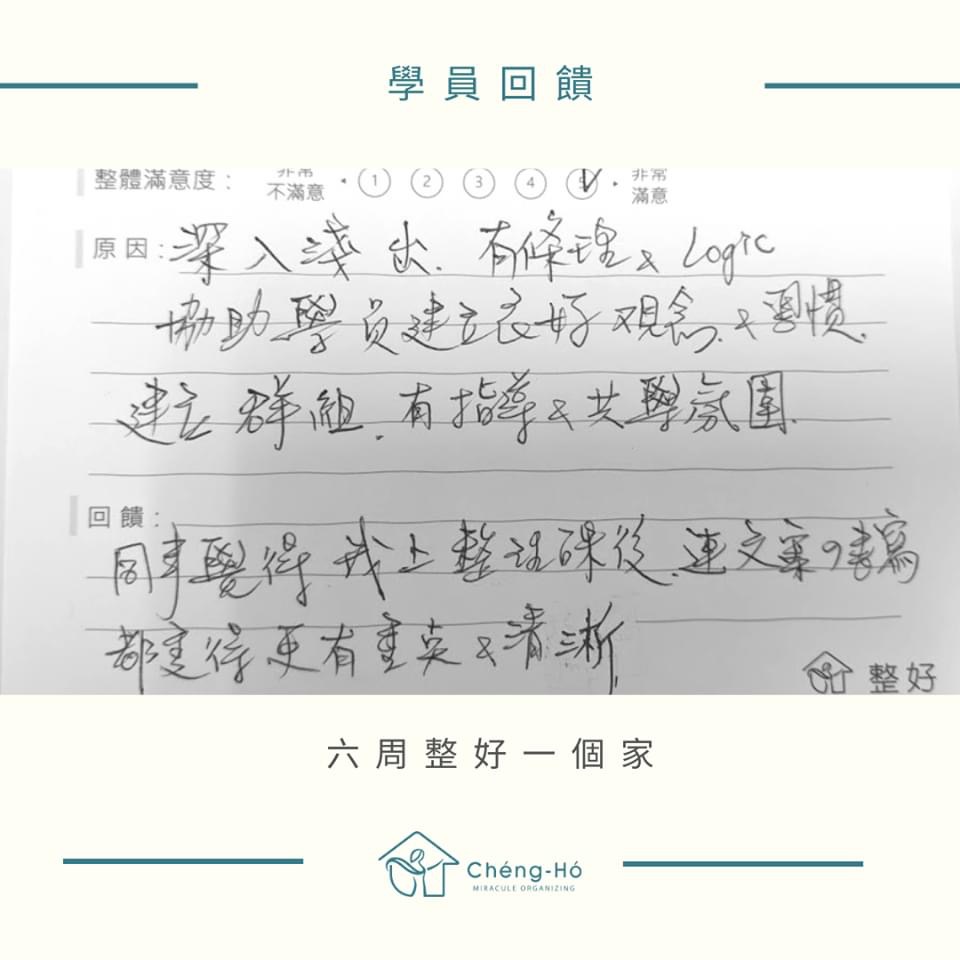 學員回饋
整體滿意度： 非常不滿意 ① ② ③ ④ ⑤ 非常滿意
原因：深入淺出. 有條理 & Logic
協助學員建立良好觀念 & 習慣.
建立群組. 有指導 & 共學氛圍.
回饋：
同事覺得我上整理課後, 連文案の書寫
都變得更有重點 & 清晰
整好
六周整好一個家
Chéng-Hó
MIRACULE ORGANIZING